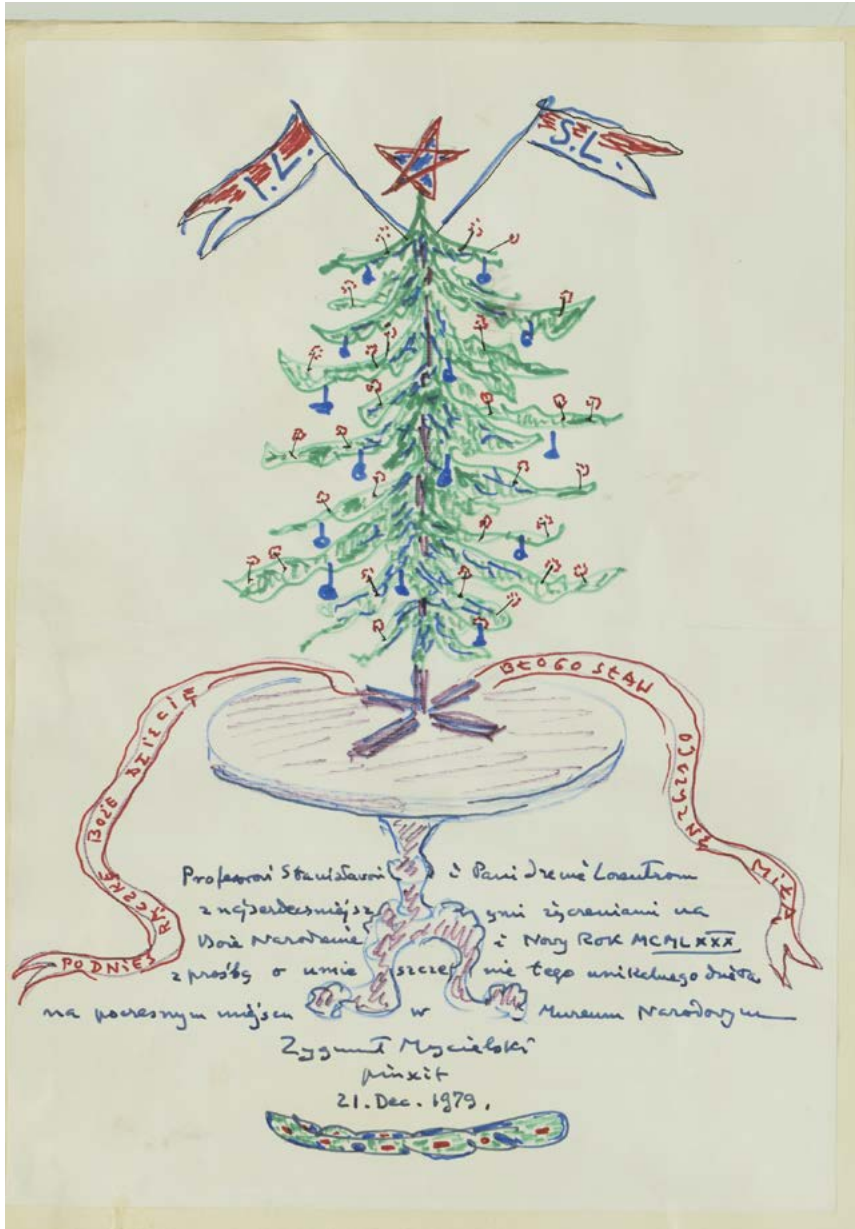 I.L.
S.L.
PODNIEŚ RĄCZKĘ BOŻE DZIECIĘ
BŁOGOSŁAW OJCZYZNĘ MIŁĄ
Profesorowi Stanisławowi i Pani Irenie Lorentzom
z najserdeczniejszymi życzeniami na
Boże Narodzenie i Nowy Rok MCMLXXX
z prośbą o umieszczenie tego unikalnego dzieła
na poczesnym miejscu w Muzeum Narodowym
Zygmunt Mycielski
pinxit
21. Dec. 1979.